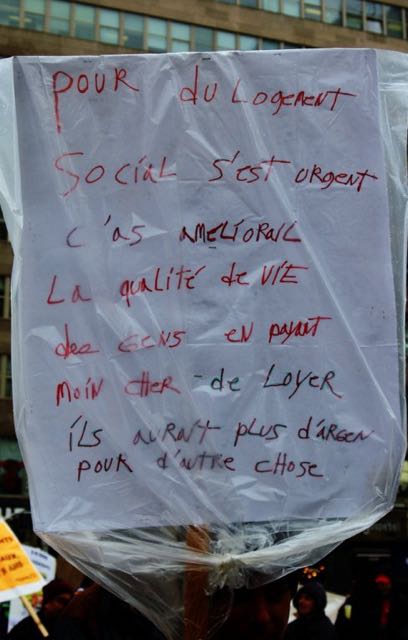 POUR du LOGEMENT
SOCIAL S'EST URGENT
C'AS AMELIORAIL
LA qualité de VIE
des GENS EN PAYANT
MOIN CHER - de LOYER
ILS AURAIT PLUS D'ARGEN
POUR d'AUTRE CHOSE